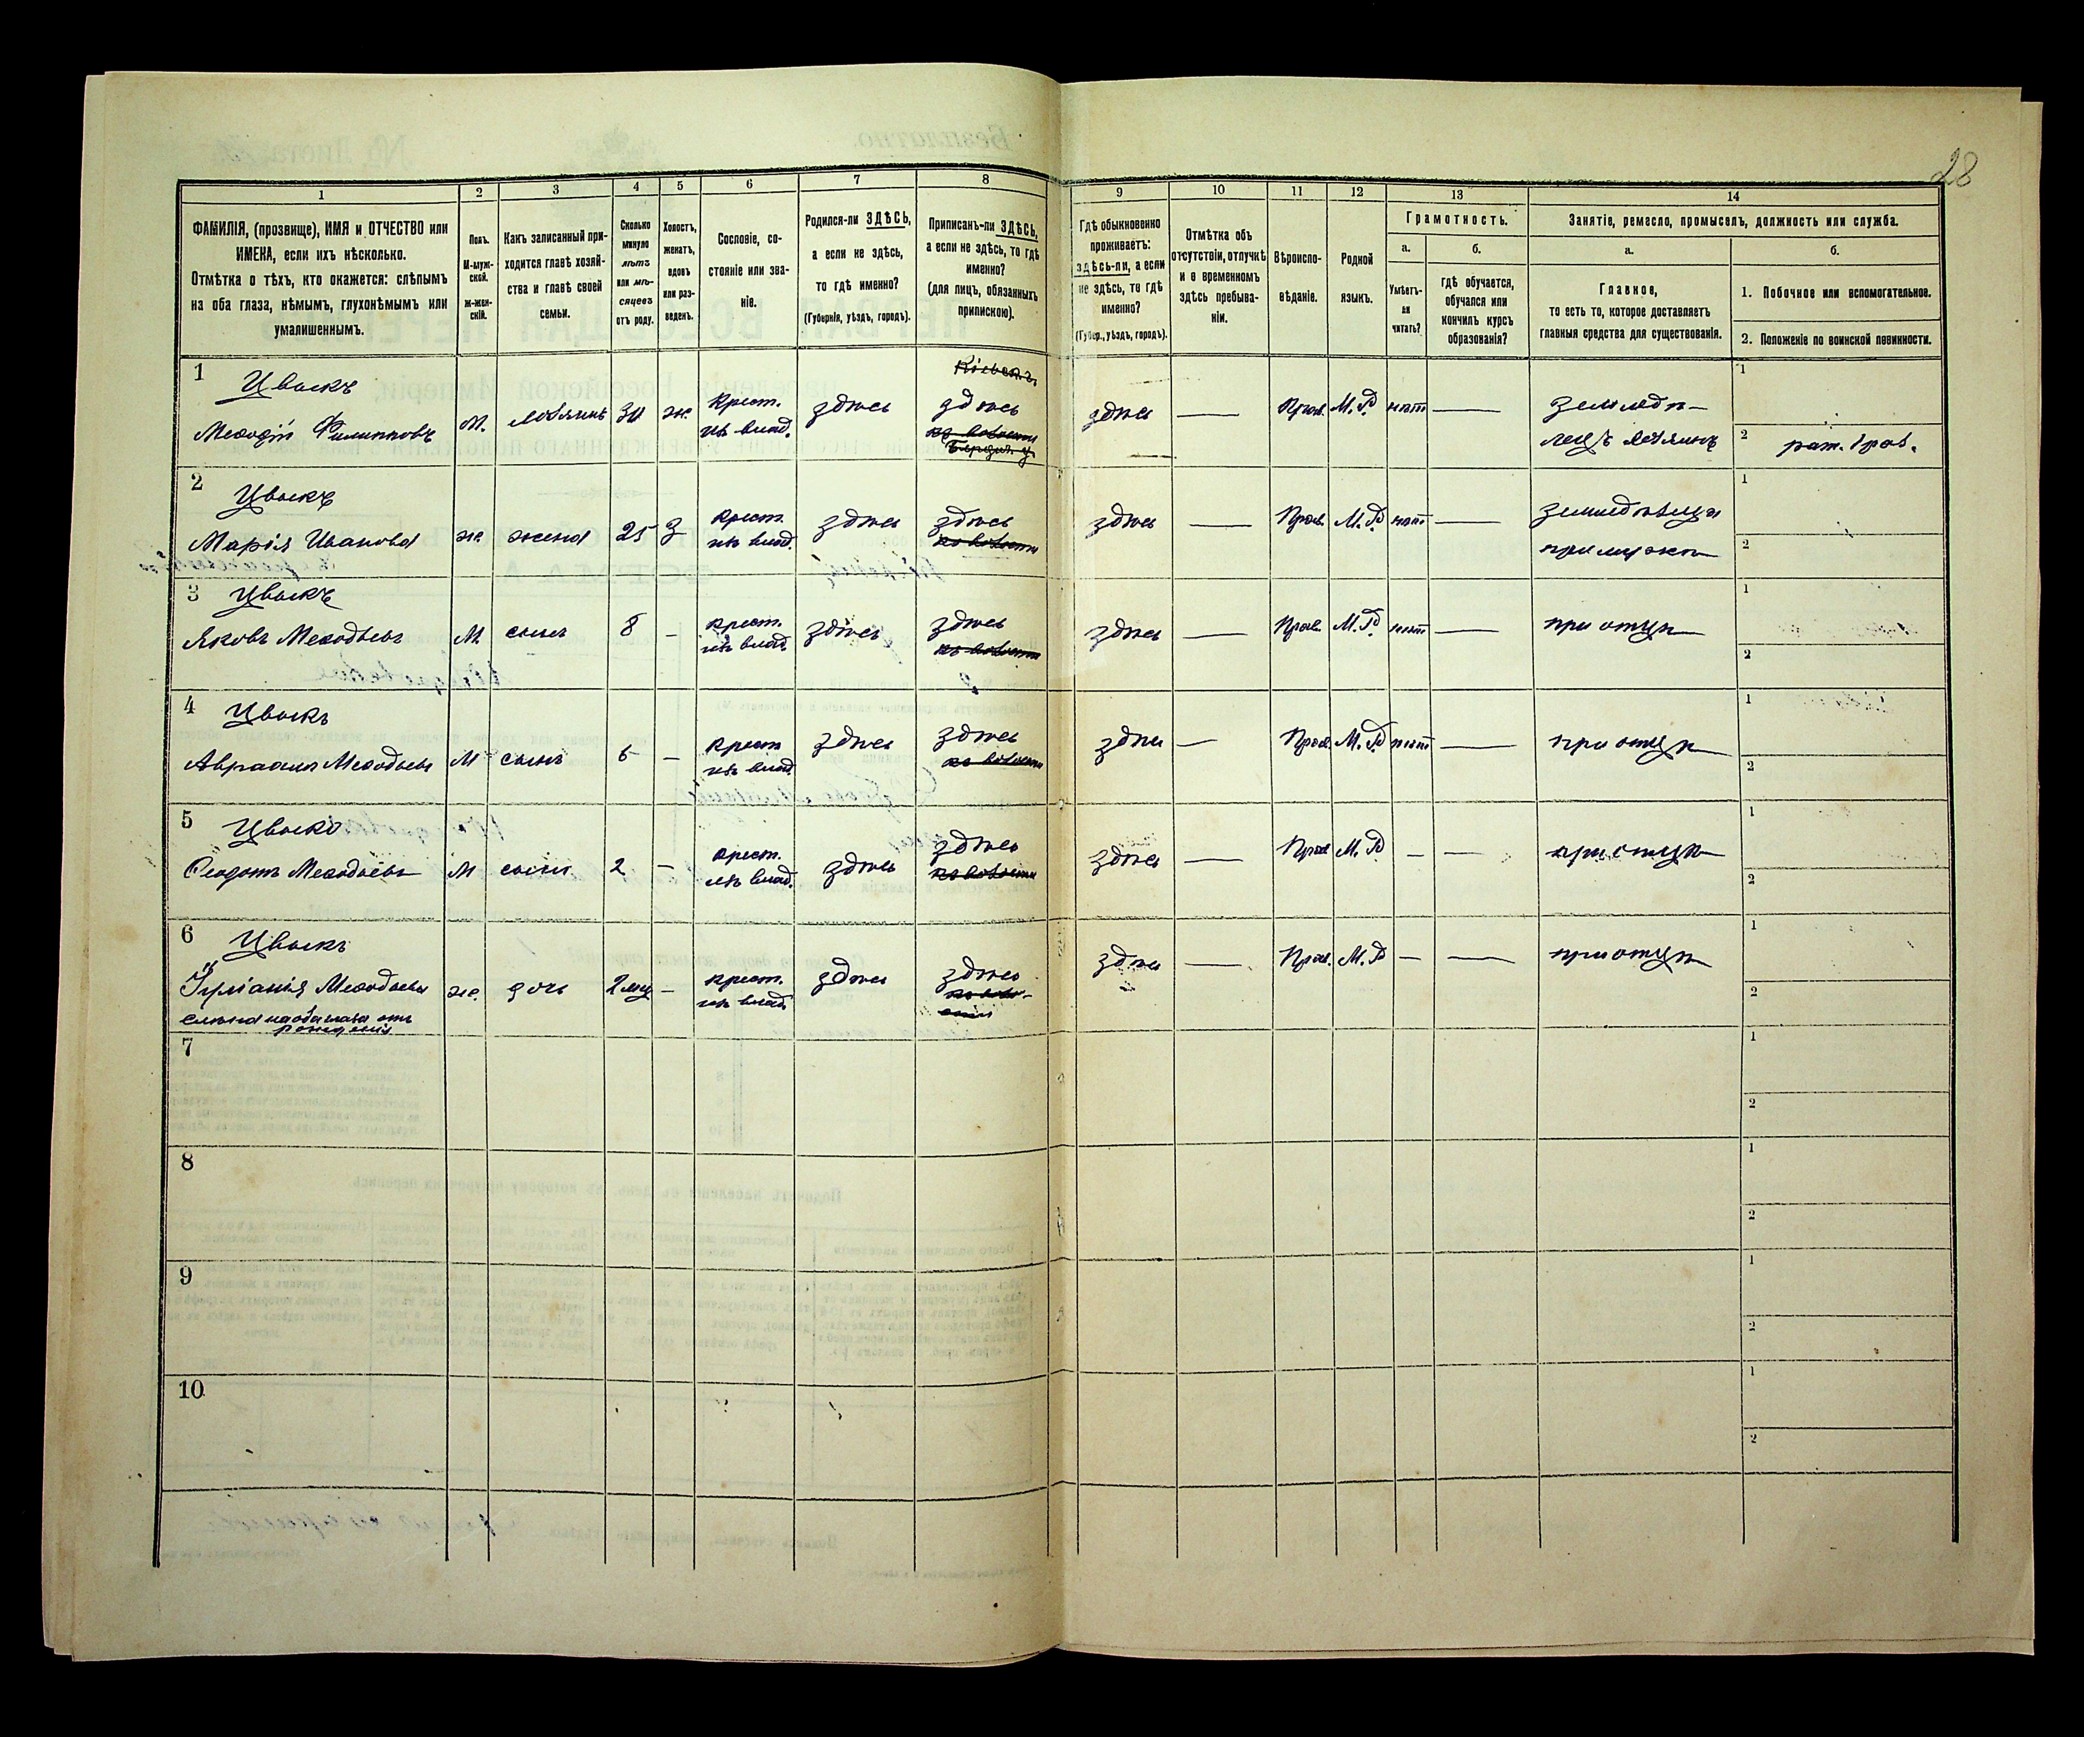 28
1
2
3
4
5
6
7
8
9
10
11
12
13
14
ФАМИЛІЯ, (прозвище), ИМЯ и ОТЧЕСТВО или
ИМЕНА, если ихъ нѣсколько.
Отмѣтка о тѣхъ, кто окажется: слѣпымъ
на оба глаза, нѣмымъ, глухонѣмымъ или
умалишеннымъ.
Полъ.
М-муж-
ской.
ж-жен-
скій.
Какъ записанный при-
ходится главѣ хозяй-
ства и главѣ своей
семьи.
Сколько
минуло
лѣтъ
или мѣ-
сяцевъ
отъ роду.
Холостъ,
женатъ,
вдовъ
или раз-
веденъ.
Сословіе, со-
стояніе или зва-
ніе.
Родился-ли ЗДѢСЬ,
а если не здѣсь,
то гдѣ именно?
(Губернія, уѣздъ, городъ).
Приписанъ-ли ЗДѢСЬ,
а если не здѣсь, то гдѣ
именно?
(для лицъ, обязанныхъ
припискою).
Гдѣ обыкновенно
проживаетъ:
здѣсь-ли, а если
не здѣсь, то гдѣ
именно?
(Губер., уѣздъ, городъ).
Отмѣтка объ
отсутствіи, отлучкѣ
и о временномъ
здѣсь пребыва-
ніи.
Вѣроиспо-
вѣданіе.
Родной
языкъ.
Грамотность.
а.
б.
Умѣетъ-
ли
читать?
Гдѣ обучается,
обучался или
кончилъ курсъ
образованія?
Занятіе, ремесло, промыселъ, должность или служба.
а.
б.
Главное,
то есть то, которое доставляетъ
главныя средства для существованія.
1. Побочное или вспомогательное.
2. Положеніе по воинской повинности.
1
Цвыкъ
Мефодій Филипповъ
М.
хозяинъ
ж.
Крест.
изъ влад.
здѣсь
здѣсь
здѣсь
—
Прав.
М.Р.
нѣт
—
землед‍ѣ-
лецъ хозяинъ
1
2
рат. 1 раз.
2
Цвыкъ
Марія Иванова
ж.
жена
25
З
Крест.
изъ влад.
здѣсь
здѣсь
здѣсь
—
Прав.
М.Р.
нѣт
—
земледѣлица
при мужѣ
1
2
3
Цвыкъ
Яковъ Мефодьевъ
М.
сынъ
8
—
крест.
изъ влад.
здѣсь
здѣсь
здѣсь
—
Прав.
М.Р.
нѣт
—
при отцѣ
1
2
4
Цвыкъ
Авраамъ Мефодьевъ
М
сынъ
—
крест
изъ влад.
здѣсь
здѣсь
здѣсь
—
Прав.
М.Р
нѣт
—
при отцѣ
1
2
5
Цвыкъ
Ѳеодотъ Мефодьевъ
М
сынъ
2
—
крест.
изъ влад.
здѣсь
здѣсь
здѣсь
—
Прав
М.Р
—
—
при отцѣ
1
2
6
Цвыкъ
Мефодьева
слѣпа на оба глаза отъ
рожденія
ж.
дочь
2 мѣ
—
крест.
изъ влад.
здѣсь
здѣсь
здѣсь
—
Прав.
М.Р
—
—
при отцѣ
1
2
7
1
2
8
1
2
9
1
2
10
1
2